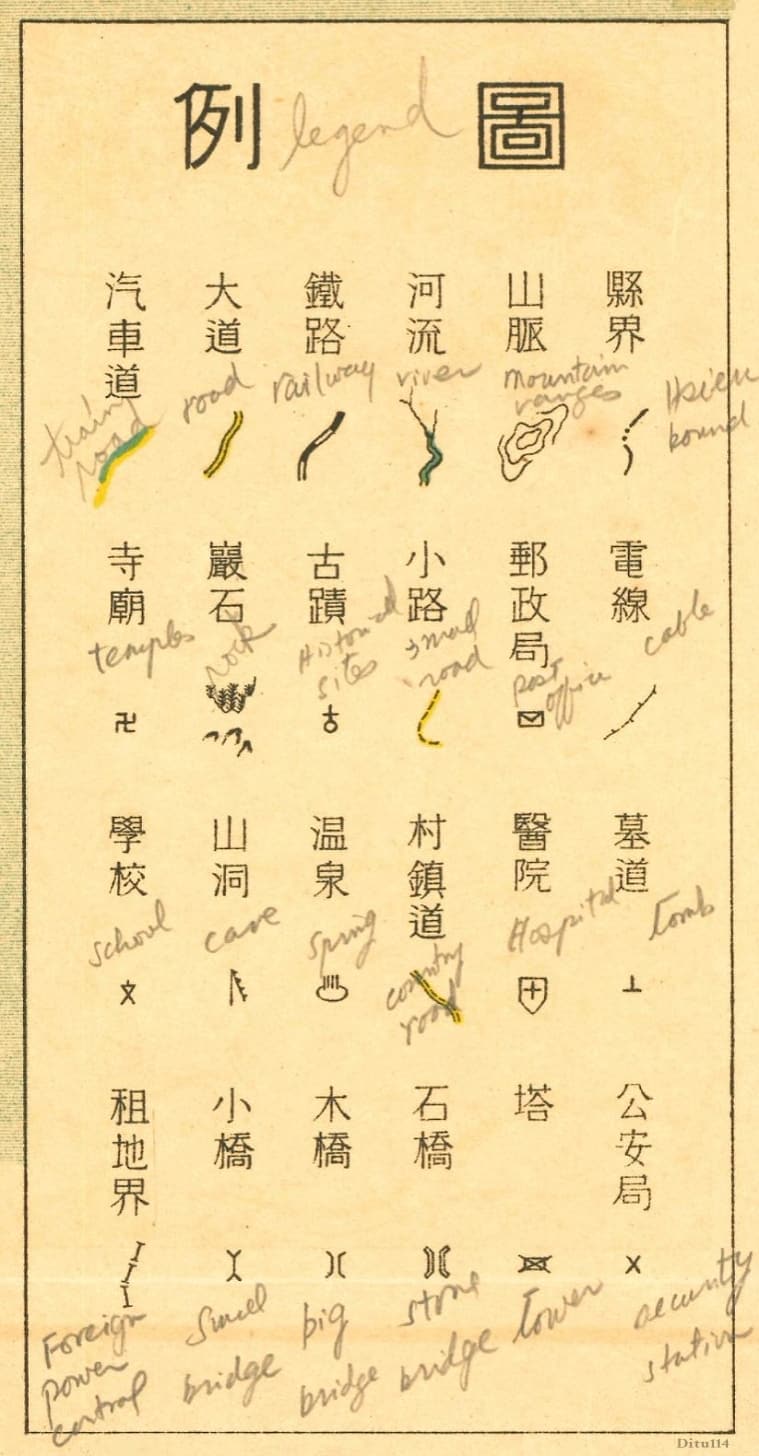 圖例
legend
縣界
Hsien
bound
山脈
mountain
ranges
河流
river
鐵路
railway
大道
road
汽車道
train
road
電線
cable
郵政局
post
office
小路
small
road
古蹟
Historical
sites
巖石
rock
寺廟
temples
卍
墓道
tomb
醫院
Hospital
村鎮道
country
road
温泉
spring
山洞
cave
學校
school
文
公安局
security
station
塔
tower
石橋
stone
bridge
木橋
big
bridge
小橋
small
bridge
租地界
Foreign
power
control
Ditu114